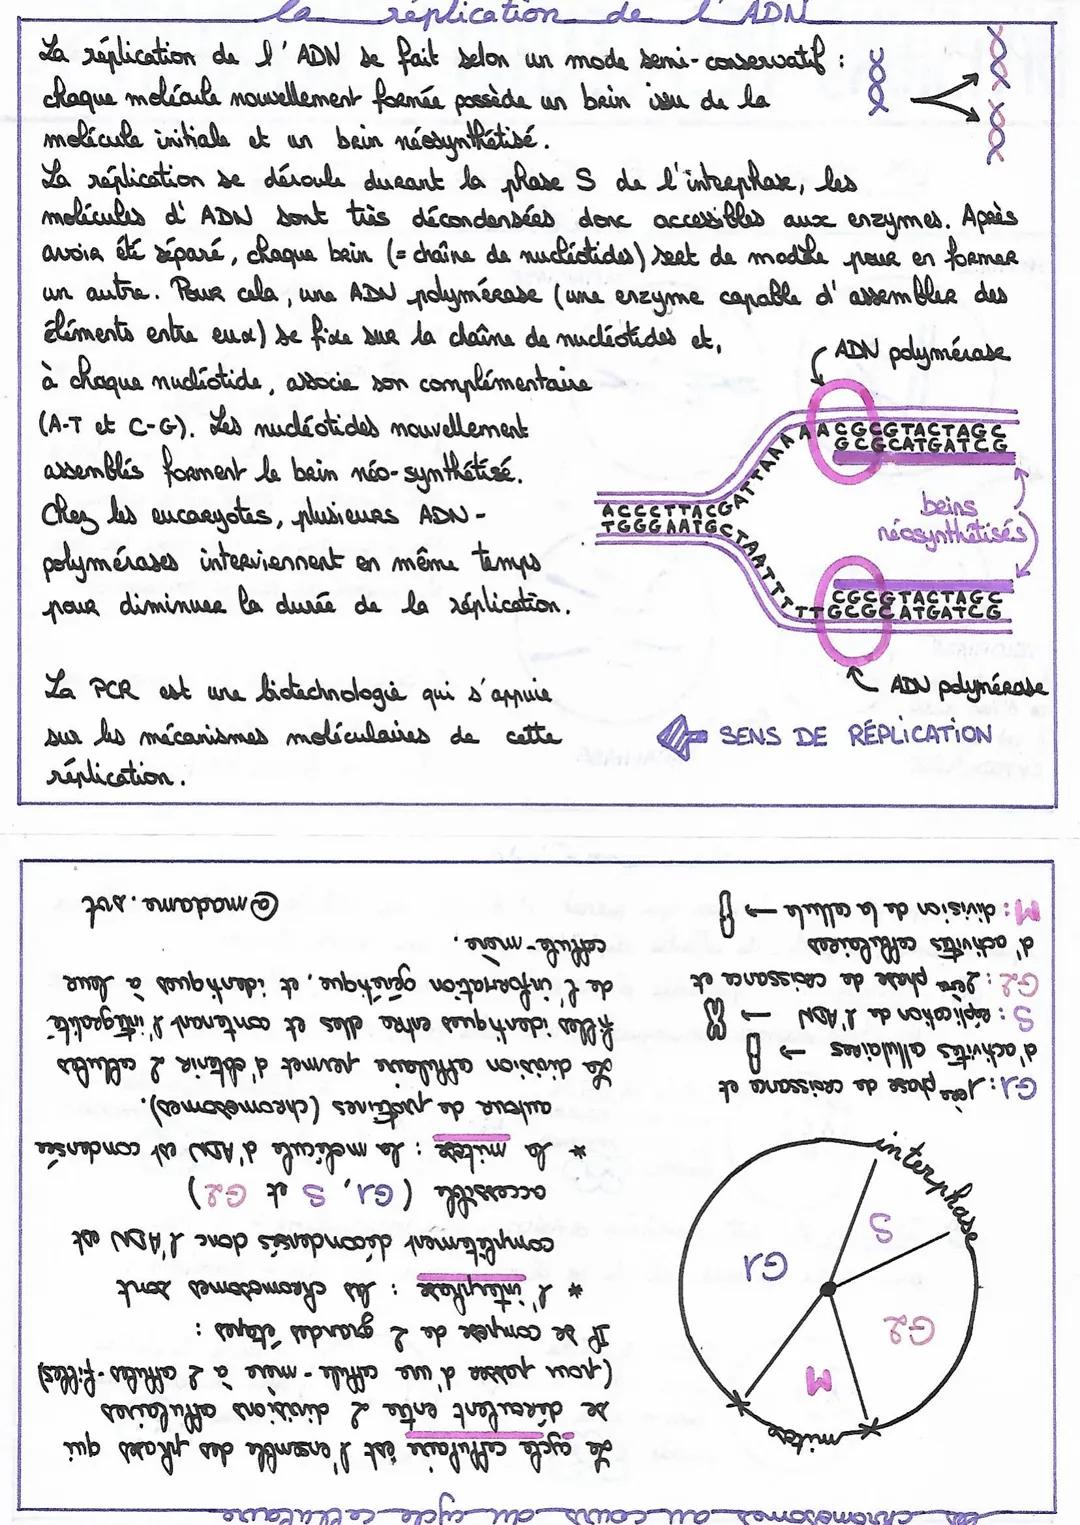 la réplication de l'ADN
La réplication de l'ADN se fait selon un mode semi-conservatif :
chaque molécule nouvellement formée possède un brin issu de la
molécule initiale et un brin néosynthétisé.
La réplication se déroule durant la phase S de l'intrephase, les
molécules d'ADN sont très décondensées donc accessibles aux enzymes. Après
avoir été séparé, chaque brin (= chaîne de nucléotides) sert de modèle pour en former
un autre. Pour cela, une ADN polymérase (une enzyme capable d'assembler des
éléments entre eux) se fixe sur la chaîne de nucléotides et,
à chaque nucléotide, associe son complémentaire
(A-T et C-G). Les nucléotides nouvellement
assemblés forment le brin néo-synthétisé.
Chez les eucaryotes, plusieurs ADN-
polymérases interviennent en même temps
pour diminuer la durée de la réplication.
La PCR est une biotechnologie qui s'appuie
sur les mécanismes moléculaires de cette
réplication.
ADN polymérase
ACGCGTACTAGC
GCGCATGATCG
ACCCTTACGATTAAAA
TGGGAATGCTAATTTT
brins
néosynthétisés
CGCGTACTAGC
TGCGCATGATCG
ADN polymérase
SENS DE RÉPLICATION
Les chromosomes au cours du cycle cellulaire
Le cycle cellulaire est l'ensemble des phases qui
se déroulent entre 2 divisions cellulaires
(pour passer d'une cellule-mère à 2 cellules-filles)
Il se compose de 2 grandes étapes :
* l'interphase : les chromosomes sont
complètement décondensés donc l'ADN est
accessible (G1, S et G2)
* la mitose : la molécule d'ADN est condensée
autour de protéines (chromosomes).
La division cellulaire permet d'obtenir 2 cellules
filles identiques entre elles et contenant l'intégralité
de l'information génétique, et identiques à leur
cellule-mère.
@madame.svt
mitose
M
G2
G1
S
interphase
G1: 1ère phase de croissance et
d'activités cellulaires →
S: réplication de l'ADN →
G2: 2ème phase de croissance et
d'activités cellulaires
M: division de la cellule →